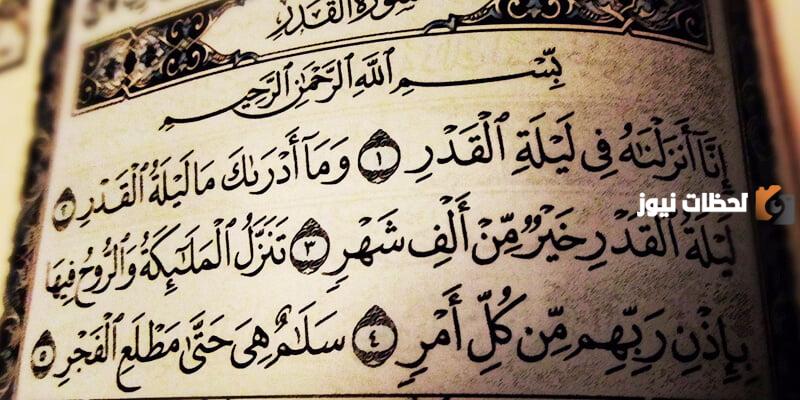 سُورَةُ الْقَدْرِ
بِسْمِ ٱللَّهِ ٱلرَّحْمَٰنِ ٱلرَّحِيمِ
إِنَّآ أَنزَلْنَٰهُ فِى لَيْلَةِ ٱلْقَدْرِ ١ وَمَآ أَدْرَىٰكَ مَا لَيْلَةُ ٱلْقَدْرِ ٢
لَيْلَةُ ٱلْقَدْرِ خَيْرٌ مِّنْ أَلْفِ شَهْرٍ ٣ تَنَزَّلُ ٱلْمَلَٰٓئِكَةُ وَٱلرُّوحُ فِيهَا
بِإِذْنِ رَبِّهِم مِّن كُلِّ أَمْرٍ ٤ سَلَٰمٌ هِىَ حَتَّىٰ مَطْلَعِ ٱلْفَجْرِ ٥
لحظات نيوز